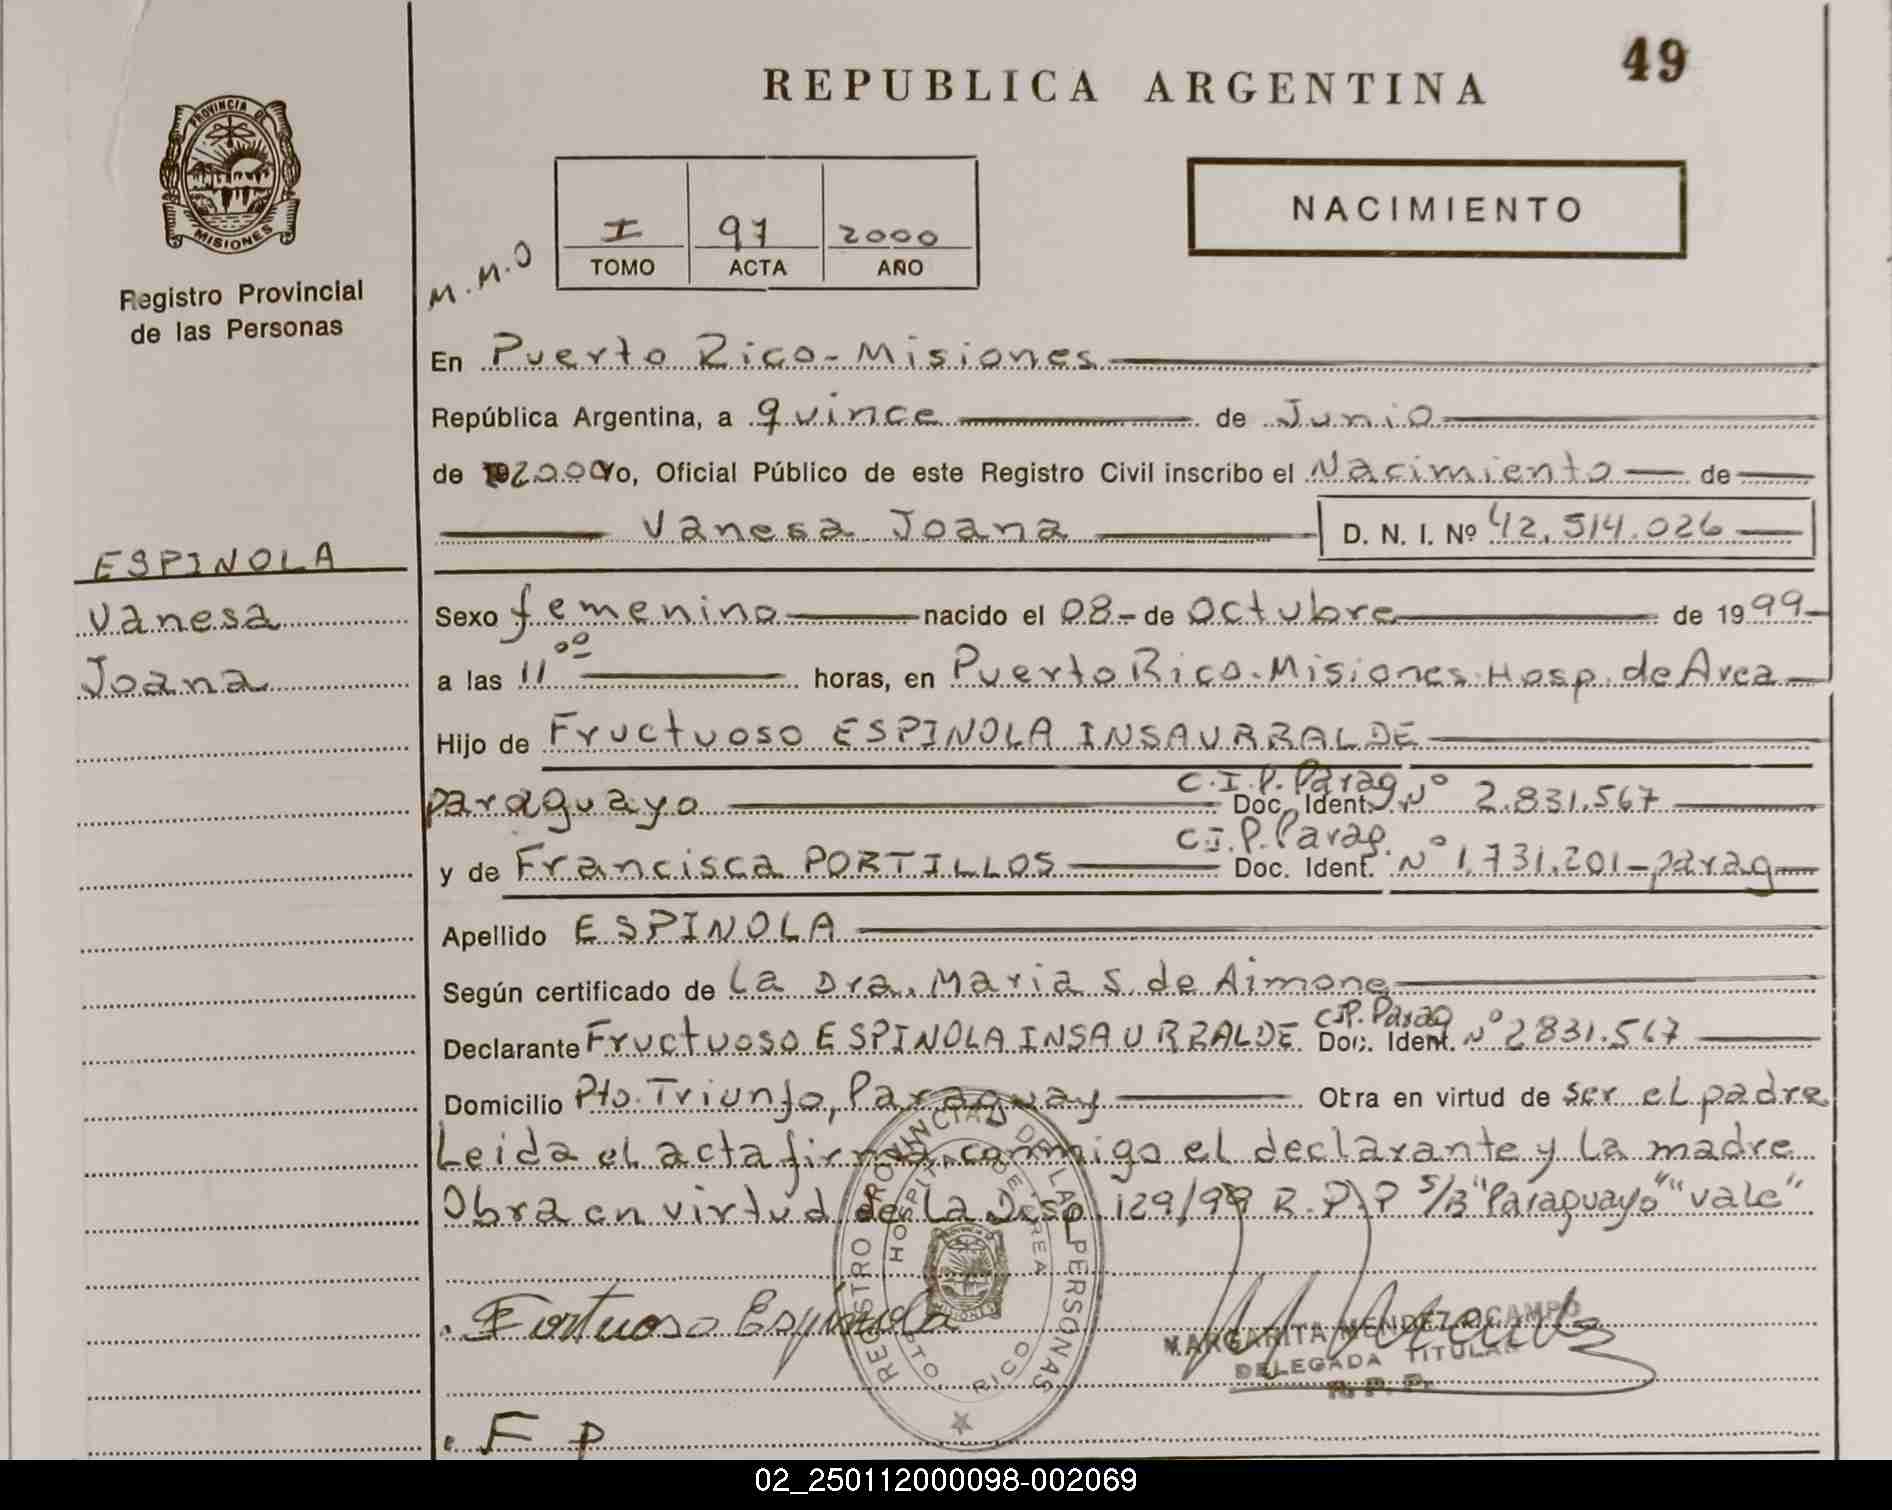 49
REPUBLICA ARGENTINA
PROVINCIA DE
MISIONES
Registro Provincial
de las Personas
NACIMIENTO
I 97 2000
TOMO ACTA AÑO
M.M.O
En Puerto Rico - Misiones
República Argentina, a quince de Junio
de 2000 Yo, Oficial Público de este Registro Civil inscribo el Nacimiento de
Vanesa Joana D. N. I. Nº 42.514.026
ESPINOLA
Vanesa
Joana
Sexo femenino nacido el 08 - de Octubre de 1999
a las 11 00 horas, en Puerto Rico - Misiones - Hosp. de Area
Hijo de Fructuoso ESPINOLA INSAURRALDE
paraguayo C.I.P. Parag Doc. Ident. Nº 2.831.567
y de Francisca PORTILLOS C.I.P. Parag. Doc. Ident. Nº 1.731.201 - parag
Apellido ESPINOLA
Según certificado de La Dra. Maria S. de Aimone
Declarante Fructuoso ESPINOLA INSAURRALDE C.I.P. Parag Doc. Ident. Nº 2831.567
Domicilio Pto. Triunfo, Paraguay Obra en virtud de ser el padre
Leida el acta firma conmigo el declarante y La madre
Obra en virtud de La Disp. 129/98 R.P.P S/B "Paraguayo" "vale"
Fortuoso Espinola
REGISTRO PROVINCIAL DE LAS PERSONAS
HOSPITAL DE AREA
PTO RICO
MARGARITA MENDEZ OCAMPO
DELEGADA TITULAR
R. P. P.
F P
02_250112000098-002069